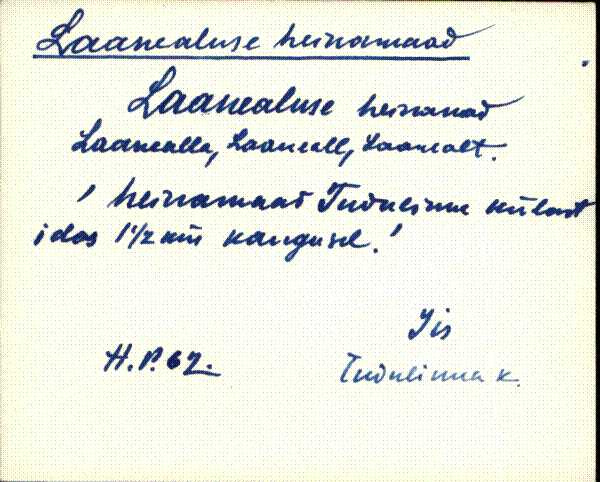 Laanealuse heinamaad
Laanealuse heinamad
Laanealla, Laaneall, Laanealt.
' heinamaad Tudulinna külast
idas 1 1/2 km kaugusel.'
Iis
H. P. 67.
Tudulinna k.